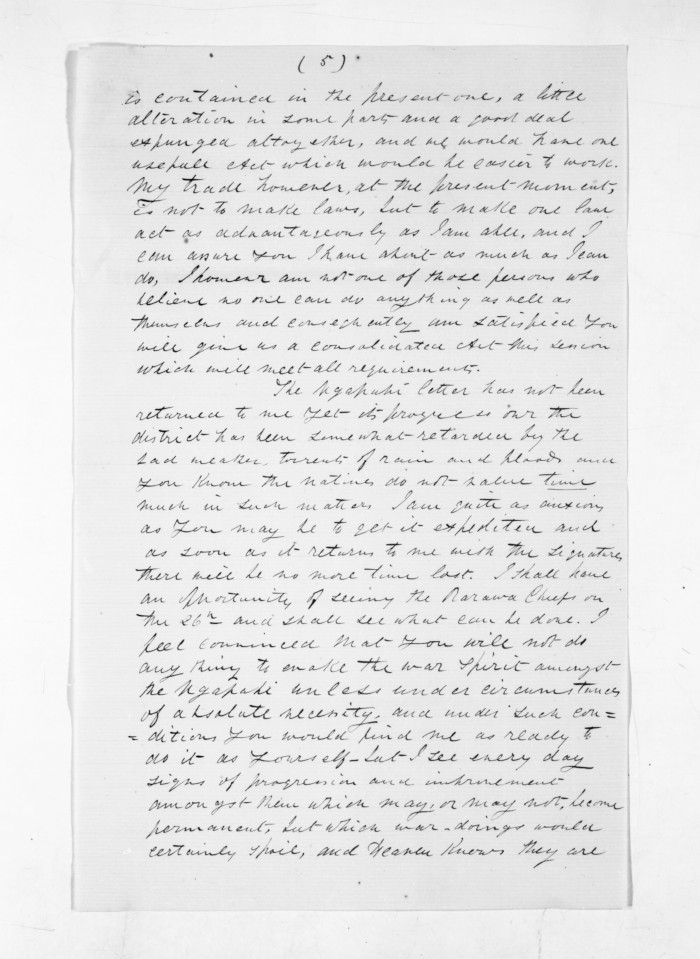 ( 5 )
is contained in the present one, a little
alteration in some parts and a good deal
expunged altogether, and we would have one
usefull Act which would be easier to work.
My trade however, at the present moment,
is not to make laws, but to make one law
act as advantageously as I am able, and I
can assure you I have about as much as I can
do, I however am not one of those persons who
believe no one can do anything as well as
themselves and consequently am satisfied you
will give us a consolidated Act this session
which will meet all requirements.
The Ngapuhi letter has not been
returned to me yet its progress over the
district has been somewhat retarded by the
bad weather, torrents of rain and floods and
you know the natives do not value time
much in such matters I am quite as anxious
as you may be to get it expedited and
as soon as it returns to me with the signatures
there will be no more time lost. I shall have
an opportunity of seeing the Rarawa Chiefs on
the 26th and shall see what can be done. I
feel convinced that you will not do
any thing to evoke the war spirit amongst
the Ngapuhi unless under circumstances
of absolute necessity, and under such con=
=ditions you would find me as ready to
do it as yourself - but I see every day
signs of progression and improvement
amongst them which may, or may not, become
permanent, but which war-doings would
certainly spoil, and Heaven Knows they are